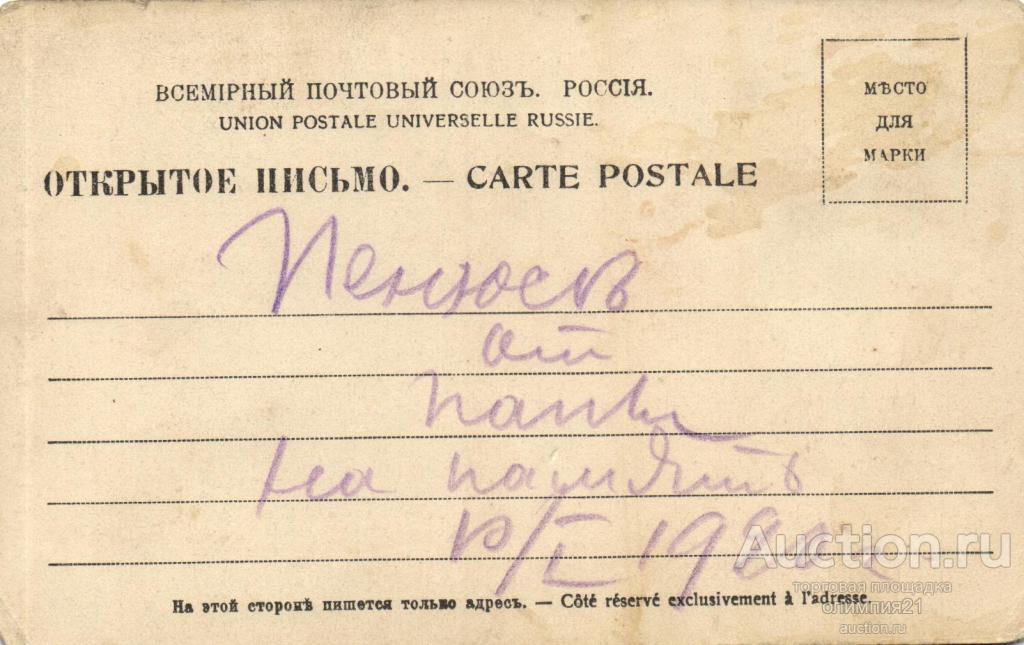 ВСЕМІРНЫЙ ПОЧТОВЫЙ СОЮЗЪ. РОССІЯ.
UNION POSTALE UNIVERSELLE RUSSIE.
МѢСТО
ДЛЯ
МАРКИ
ОТКРЫТОЕ ПИСЬМО. — CARTE POSTALE
от
папы
на память
Auction.ru
торговая площадка
олимпия21
auction.ru
На этой сторонѣ пишется только адресъ. — Côté réservé exclusivement à l'adresse.